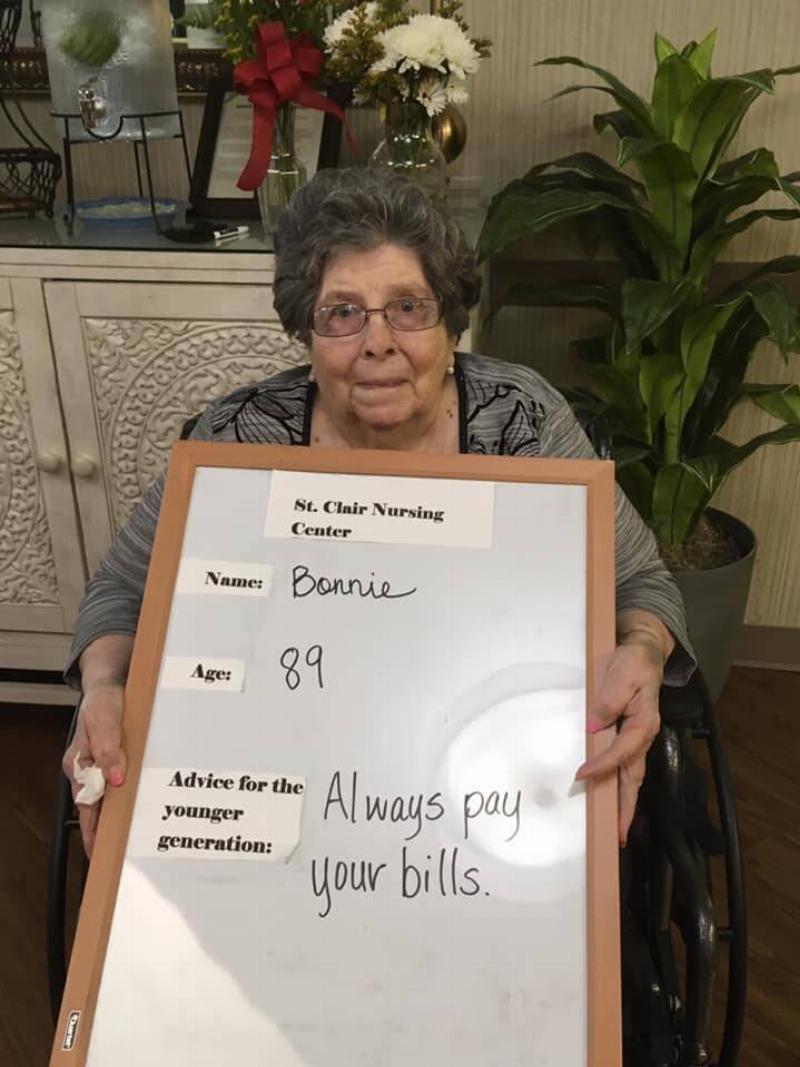 St. Clair Nursing
Center
Name: Bonnie
Age: 89
Advice for the
younger
generation:
Always pay
your bills.